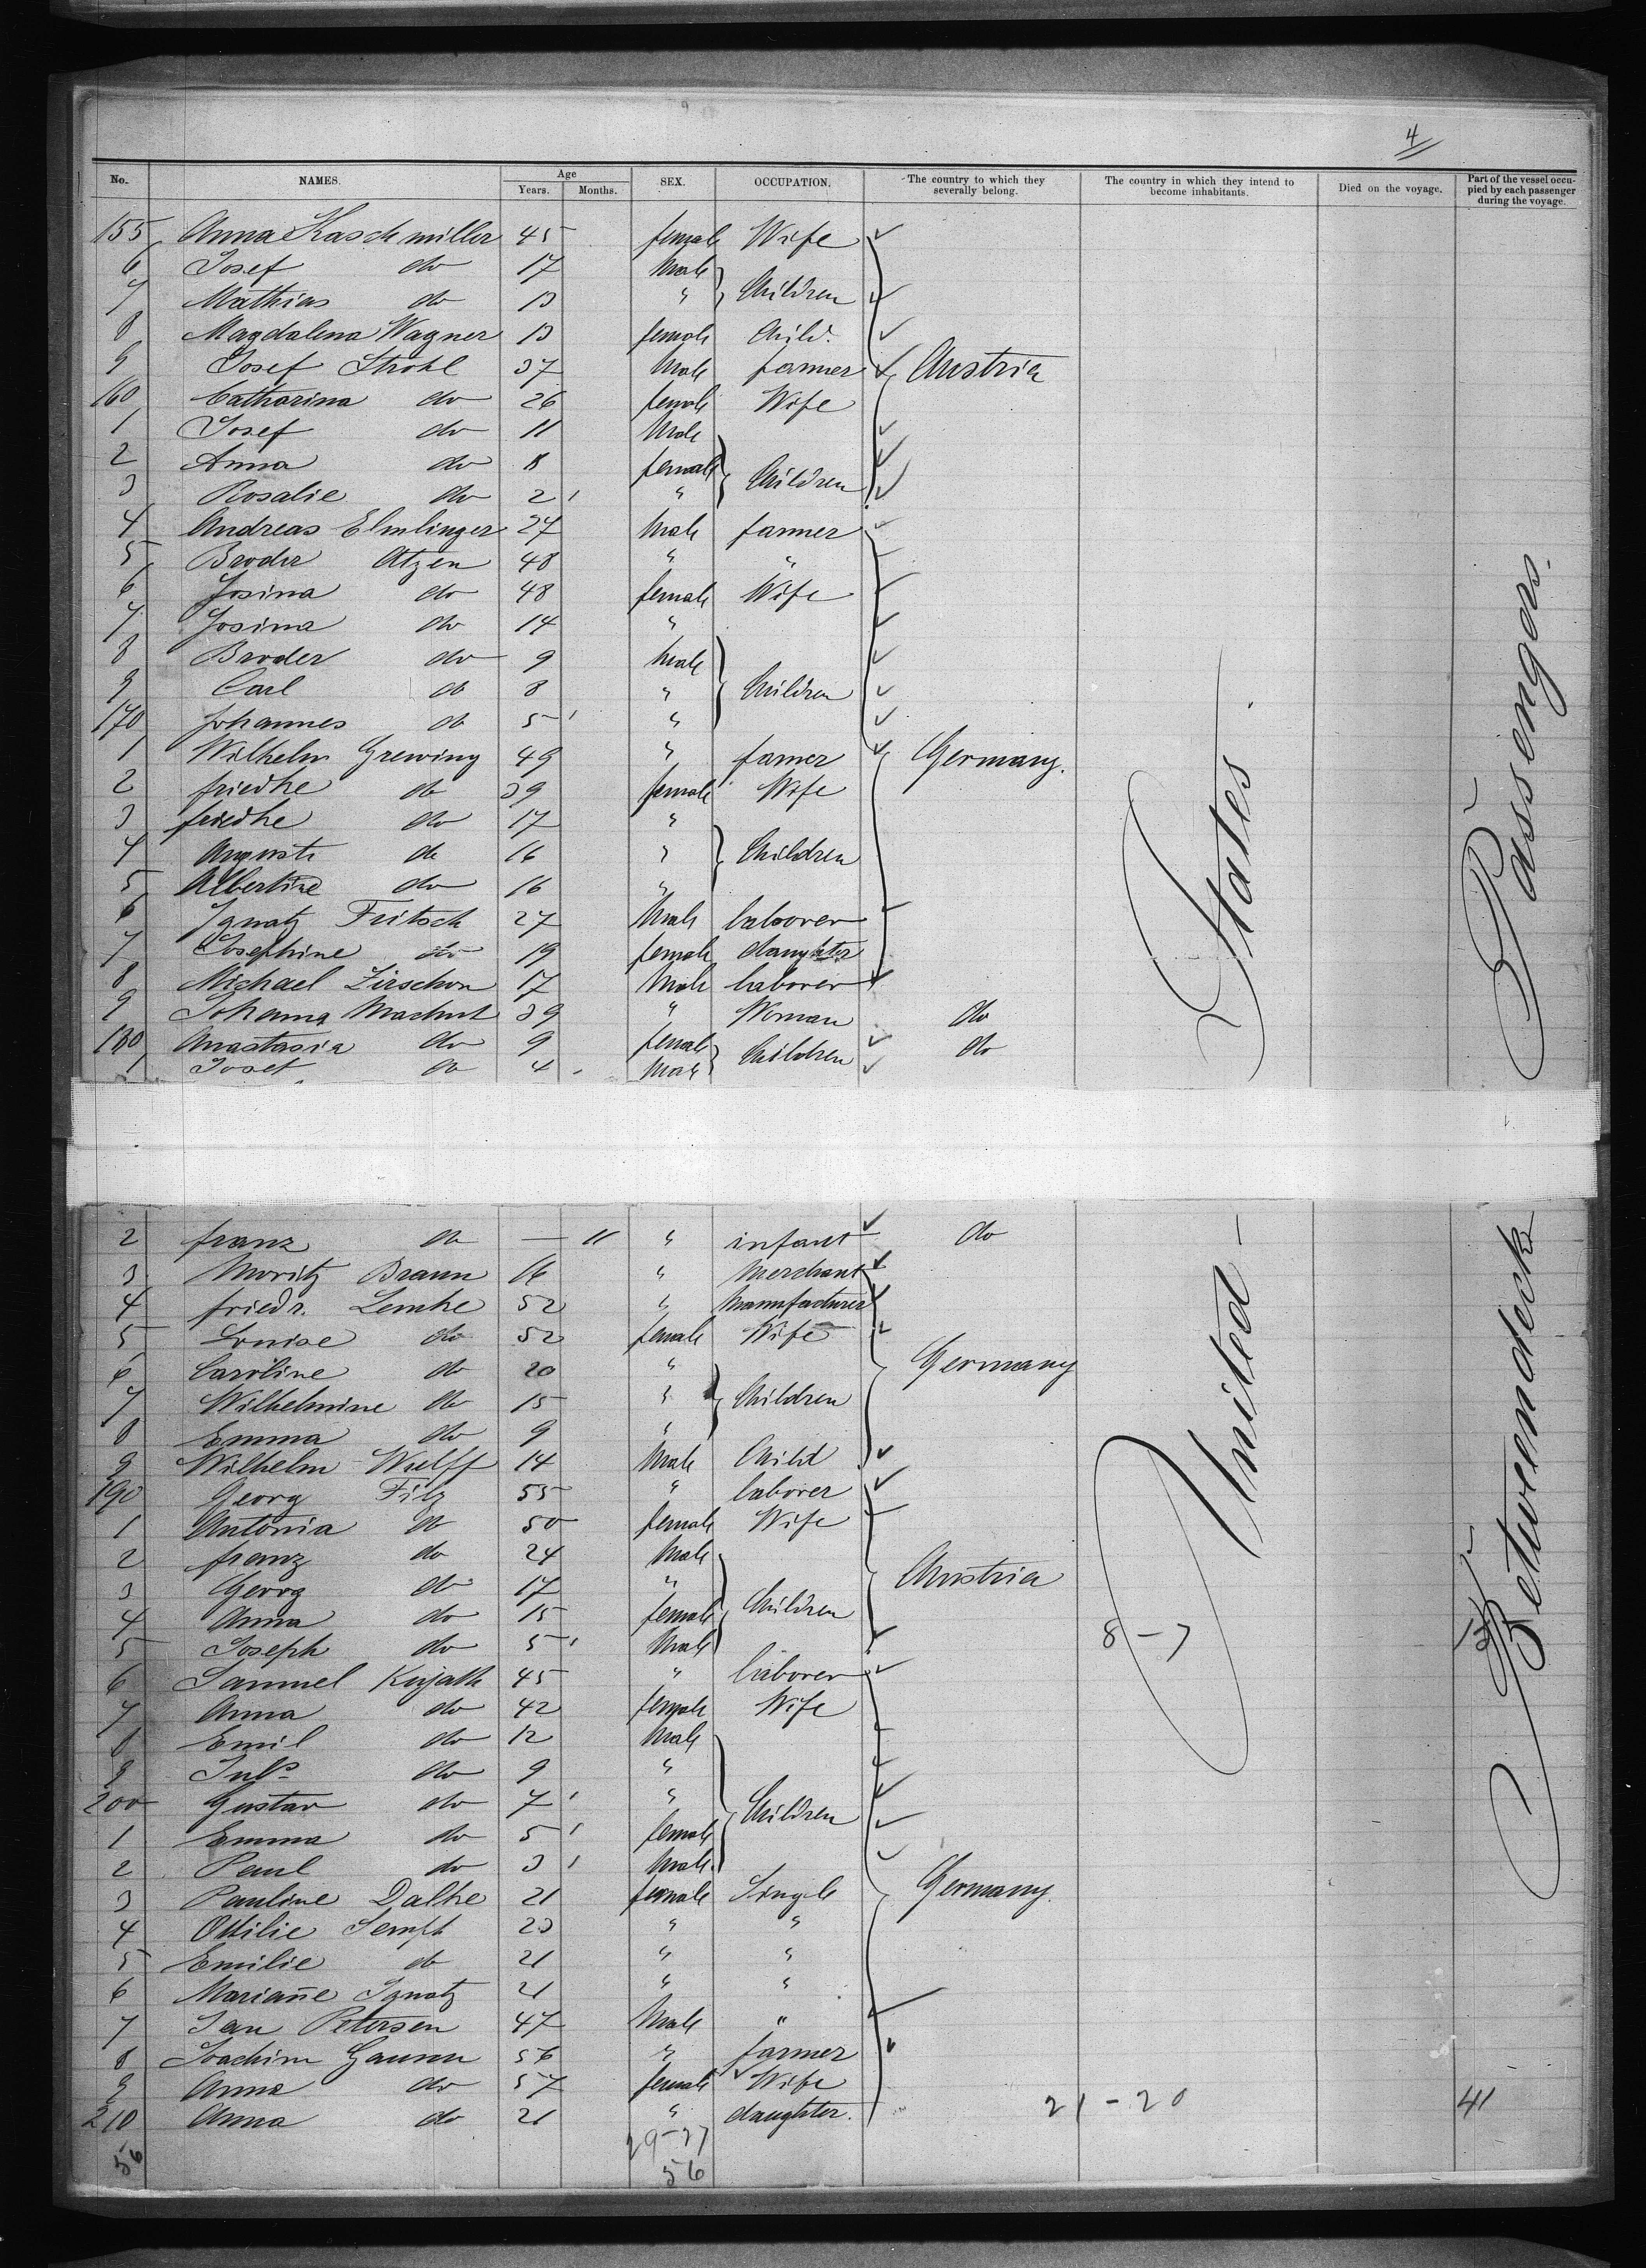 4
No. NAMES. Age Years. Months. SEX. OCCUPATION. The country to which they severally belong. The country in which they intend to become inhabitants. Died on the voyage. Part of the vessel occupied by each passenger during the voyage.
155 Anna Kaschmiller 45 female Wife
6 Josef do 17 Male
7 Mathias do 13 " Children
8 Magdalena Wagner 13 female Child.
9 Josef Strohl 37 Male farmer Austria
160 Catharina do 26 female Wife
1 Josef do 11 Male
2 Anna do 8 female Children
3 Rosalie do 2 "
4 Andreas Elmlinger 27 Male farmer
5 Broder Atzen 48 " "
6 Josina do 48 female Wife
7 Josina do 14 "
8 Broder do 9 Male
9 Carl do 8 " Children
170 Johannes do 5 "
1 Wilhelm Grewing 49 " farmer Germany.
2 friedke do 39 female Wife
3 friedke do 17 "
4 Auguste do 16 " Children
5 Albertine do 16 "
6 Ignatz Fritsch 27 Male laborer
7 Josephine do 19 female daughter
8 Michael Zirschon 17 Male laborer
9 Johanna 39 " Woman do
180 Anastasia do 9 female Children do
1 Josef do 4 Male
2 franz do — 11 " infant do
3 Moritz Braun 16 " Merchant
4 friedr. Lemke 52 " Manufacturer
5 Louise do 52 female Wife
6 Caroline do 20 " Germany
7 Wilhelmine do 15 " Children
8 Emma do 9 "
9 Wilhelm Wulff 14 Male Child
190 Georg Filz 55 " laborer
1 Antonia do 50 female Wife
2 franz do 24 Male
3 Georg do 17 " Austria
4 Anna do 15 female Children
5 Joseph do 5 Male 8-7
6 Samuel Kujath 45 " laborer
7 Anna do 42 female Wife
8 Emil do 12 Male
9 Juls do 9 "
200 Gustav do 7 " Children
1 Emma do 5 female
2 Paul do 3 Male
3 Pauline Dalke 21 female Single Germany.
4 Ottilie 23 " "
5 Emilie do 21 " "
6 Marianne Ignatz 21 " "
7 Jan Petersen 47 Male "
8 Joachim 56 " farmer
9 Anna do 57 female Wife
210 Anna do 21 " daughter. 21-20 41
56 29-27
56
United States.
Betweendeck Passengers.